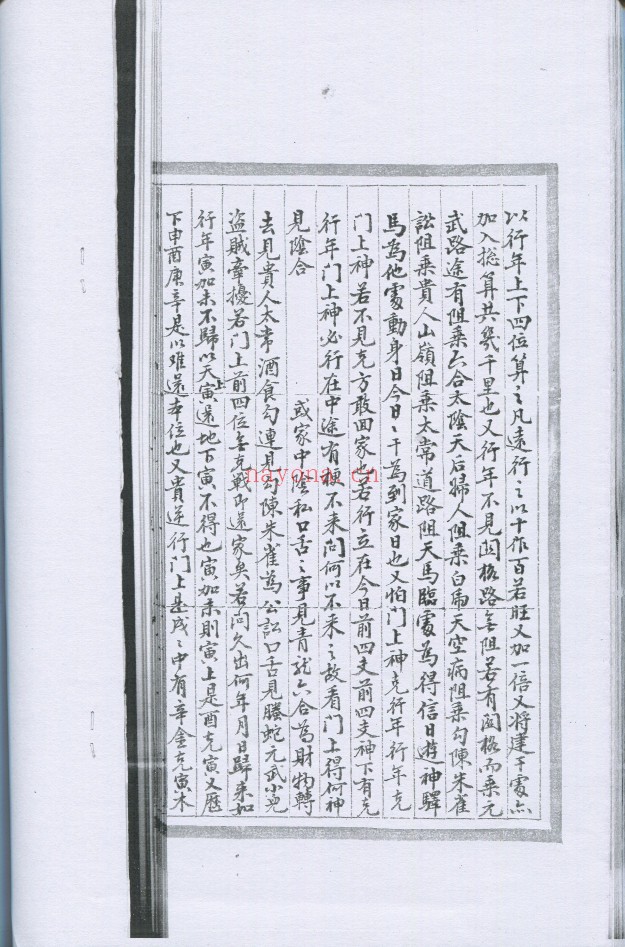 以行年上下四位算之凡遠行之以十作百若旺又加一倍又將建干處亦
加入総算共幾千里也又行年不見関格路無阻若有関格而乗元
武路途有阻乗六合太陰天后婦人阻乗白虎天空病阻乗勾陳朱雀
訟阻乗貴人山嶺阻乗太常道路阻天馬臨處為得信日遊神驛
馬為他處動身日今日之干為到家日也又怕門上神克行年行年克
門上神若不見克方敢回家也若行立在今日前四支前四支神下有克
行年門上神必行在中途有梗不来問何以不来之故看門上得何神
見陰合 或家中陰私口舌之事見青龙六合為財物轉
去見貴人太常酒食勾連見勾陳朱雀為公訟口舌見螣蛇元武小児
盗賊牽擾若門上前四位無克戰即還家矣若問久出何年月日歸来如
行年寅加未不歸以天上寅還地下寅不得也寅加未則寅上是酉克寅又歷
下申酉庚辛是以难還本位也又貴逆行門上是戌之中有辛金克寅木
nayona.cn